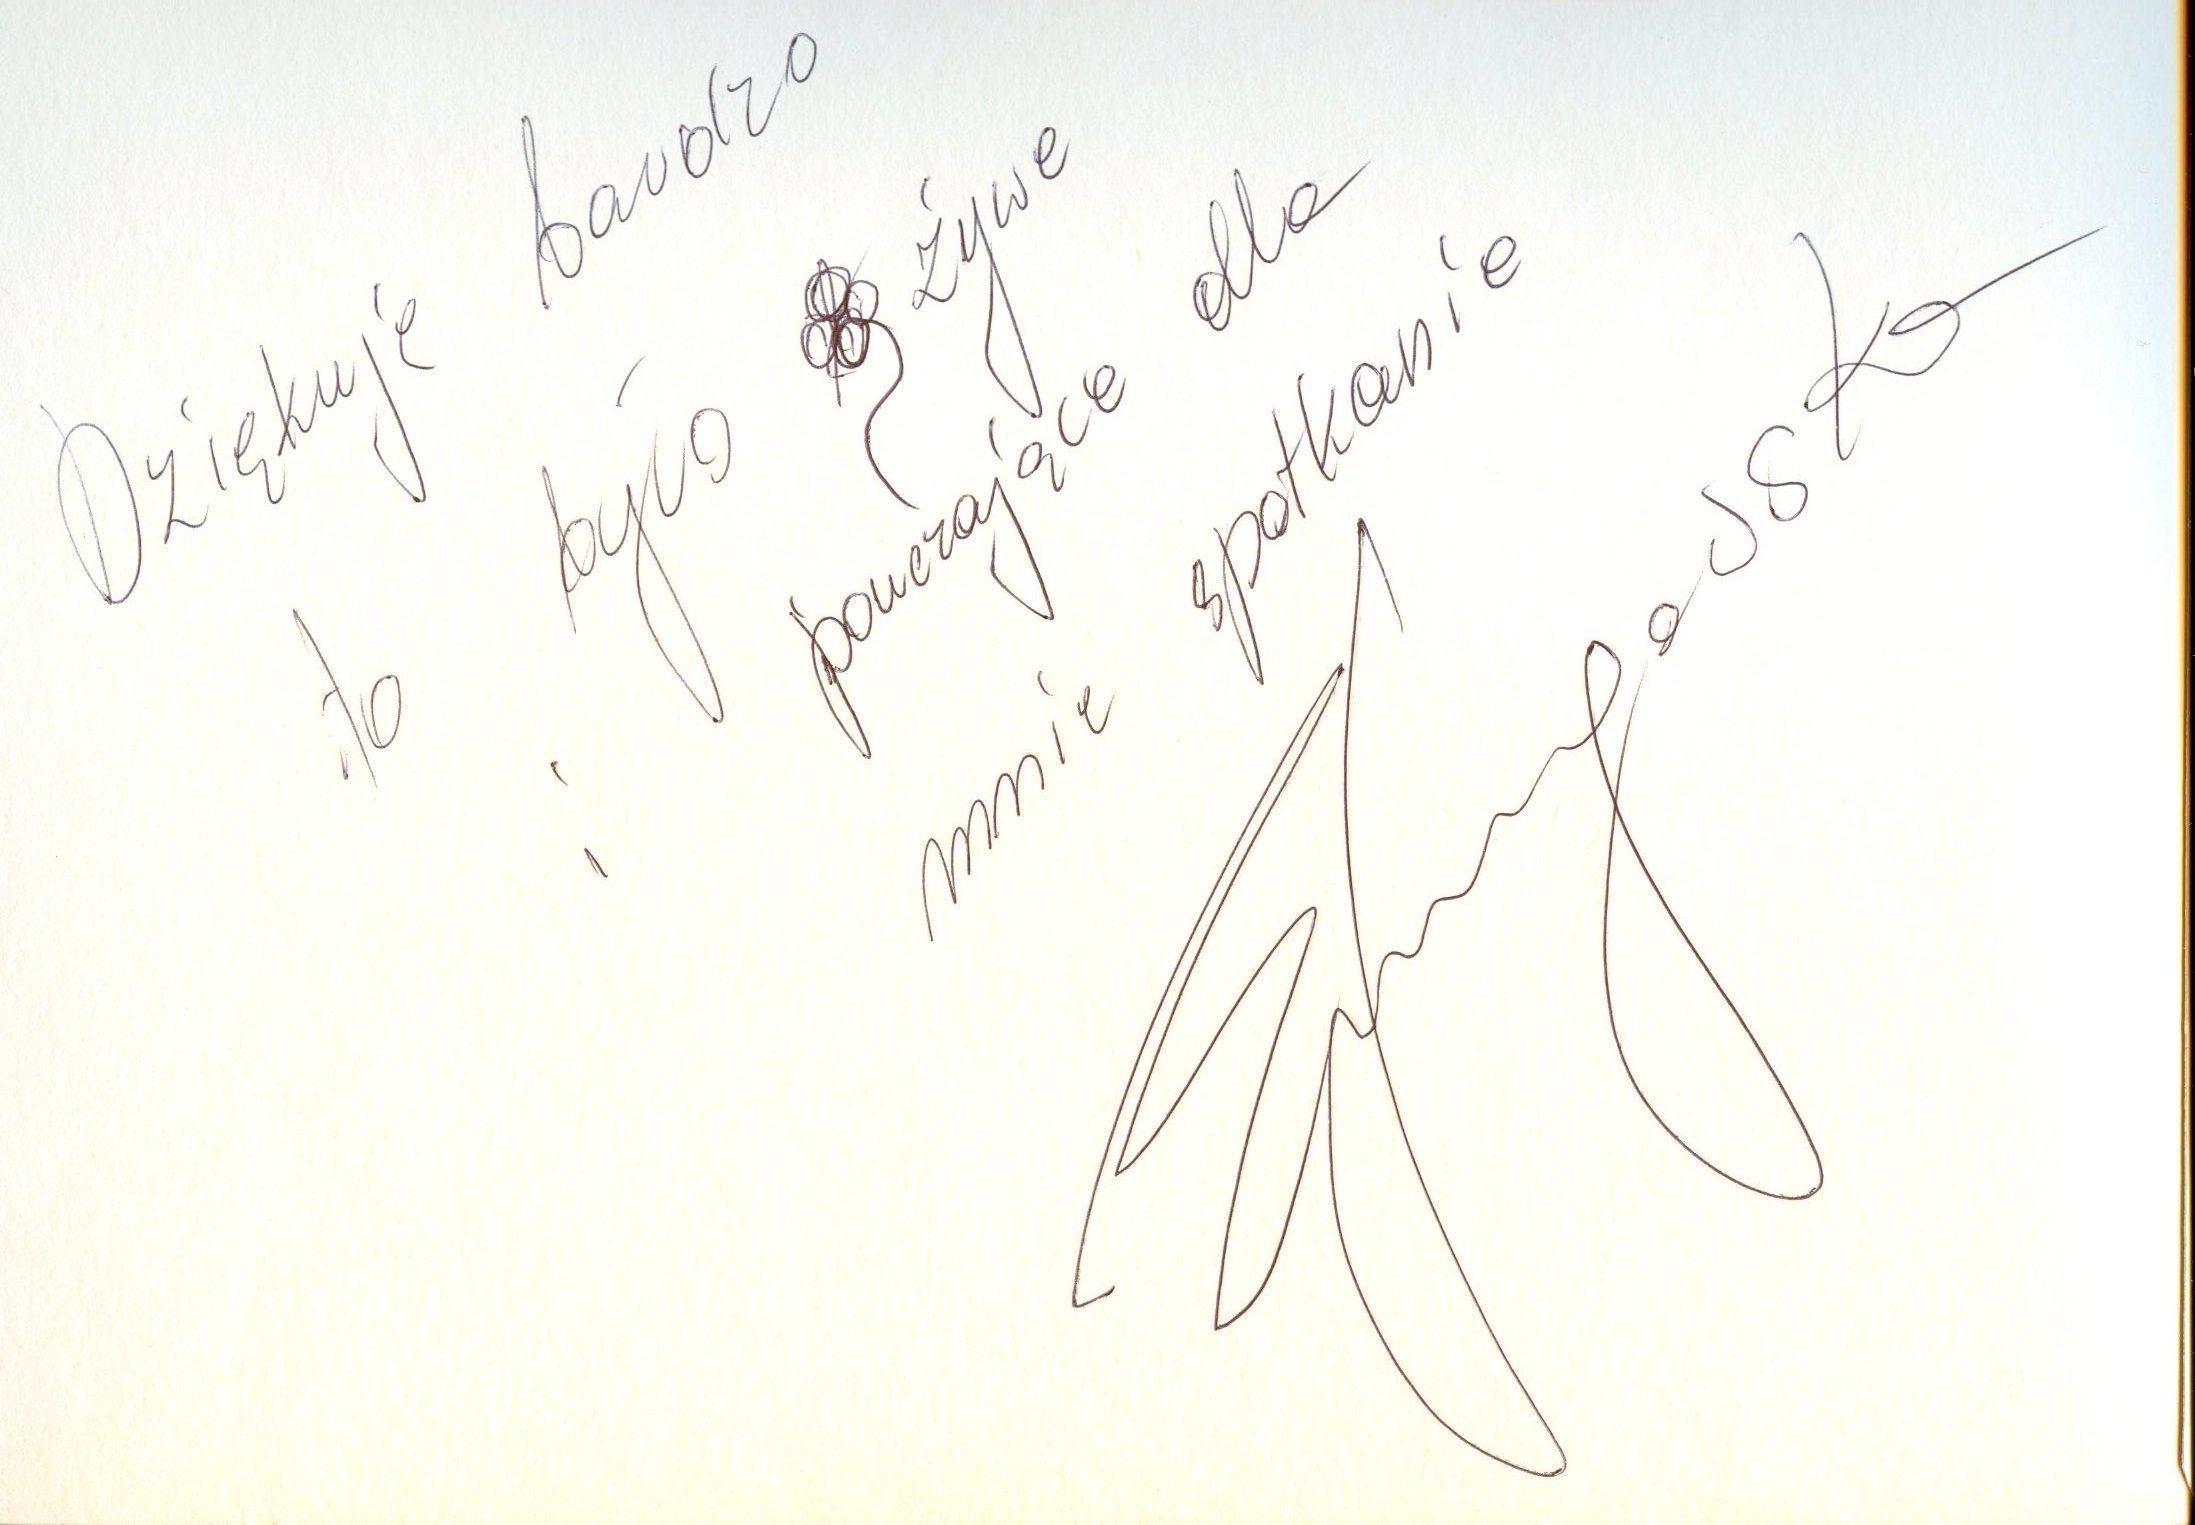 Dziękuję bardzo
to było żywe
i pouczające dla
mnie spotkanie